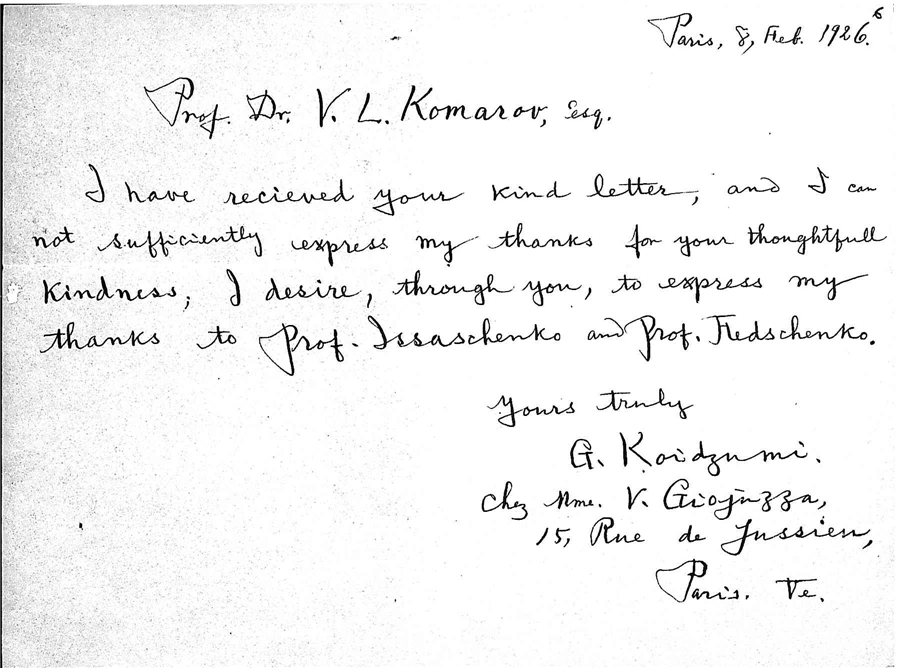 Paris, 8, Feb. 1926.
6
Prof. Dr. V. L. Komarov, Esq.
I have recieved your kind letter, and I can
not sufficiently express my thanks for your thoughtfull
kindness, I desire, through you, to express my
thanks to Prof. Issaschenko and Prof. Fedschenko.
Yours truly
G. Koidzumi.
Chez Mme. V.
15, Rue de Jussieu,
Paris. Ve.